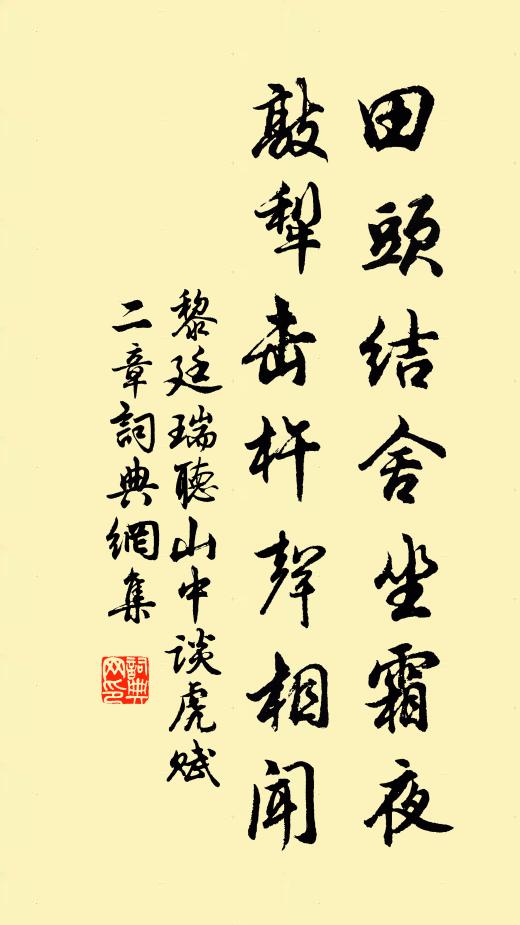 田頭結舍坐霜夜
敲犁击杵聲相聞
黎廷瑞聽山中谈虎赋
二章詞典網集
詞典網印